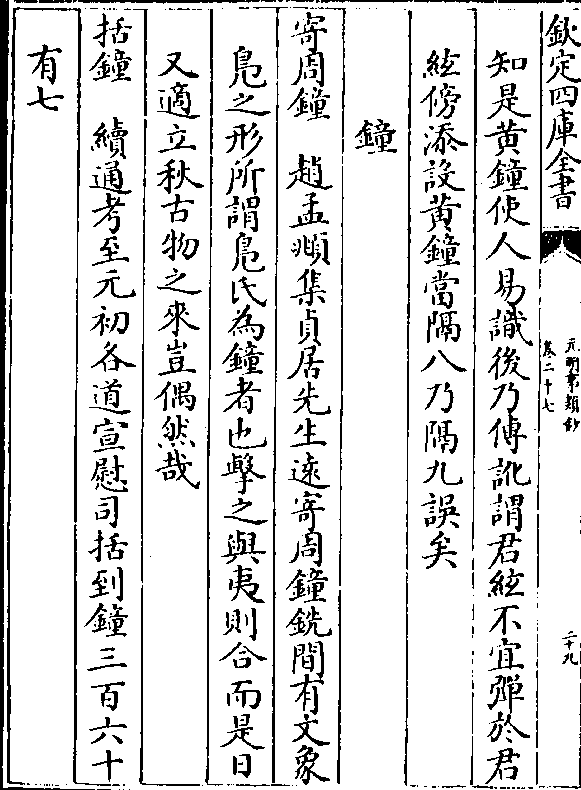 欽定四庫全書
元明事類鈔
卷二十七
二十九
知是黃鐘使人易識後乃傳訛謂君絃不宜彈於君
絃傍添設黃鐘當隔八乃隔九誤矣
鐘
寄周鐘 趙孟頫集貞居先生遠寄周鐘銑間有文象
鳧之形所謂鳧氏為鐘者也擊之與夷則合而是日
又適立秋古物之來豈偶然哉
括鐘 續通考至元初各道宣慰司括到鐘三百六十
有七